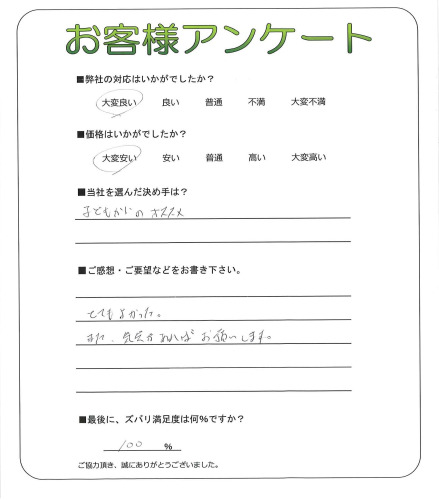 お客様アンケート
■弊社の対応はいかがでしたか？
大変良い 良い 普通 不満 大変不満
■価格はいかがでしたか？
大変安い 安い 普通 高い 大変高い
■当社を選んだ決め手は？
子どもからのオススメ
■ご感想・ご要望などをお書き下さい。
とてもよかった。
また、機会があればお願いします。
■最後に、ズバリ満足度は何％ですか？
100 ％
ご協力頂き、誠にありがとうございました。